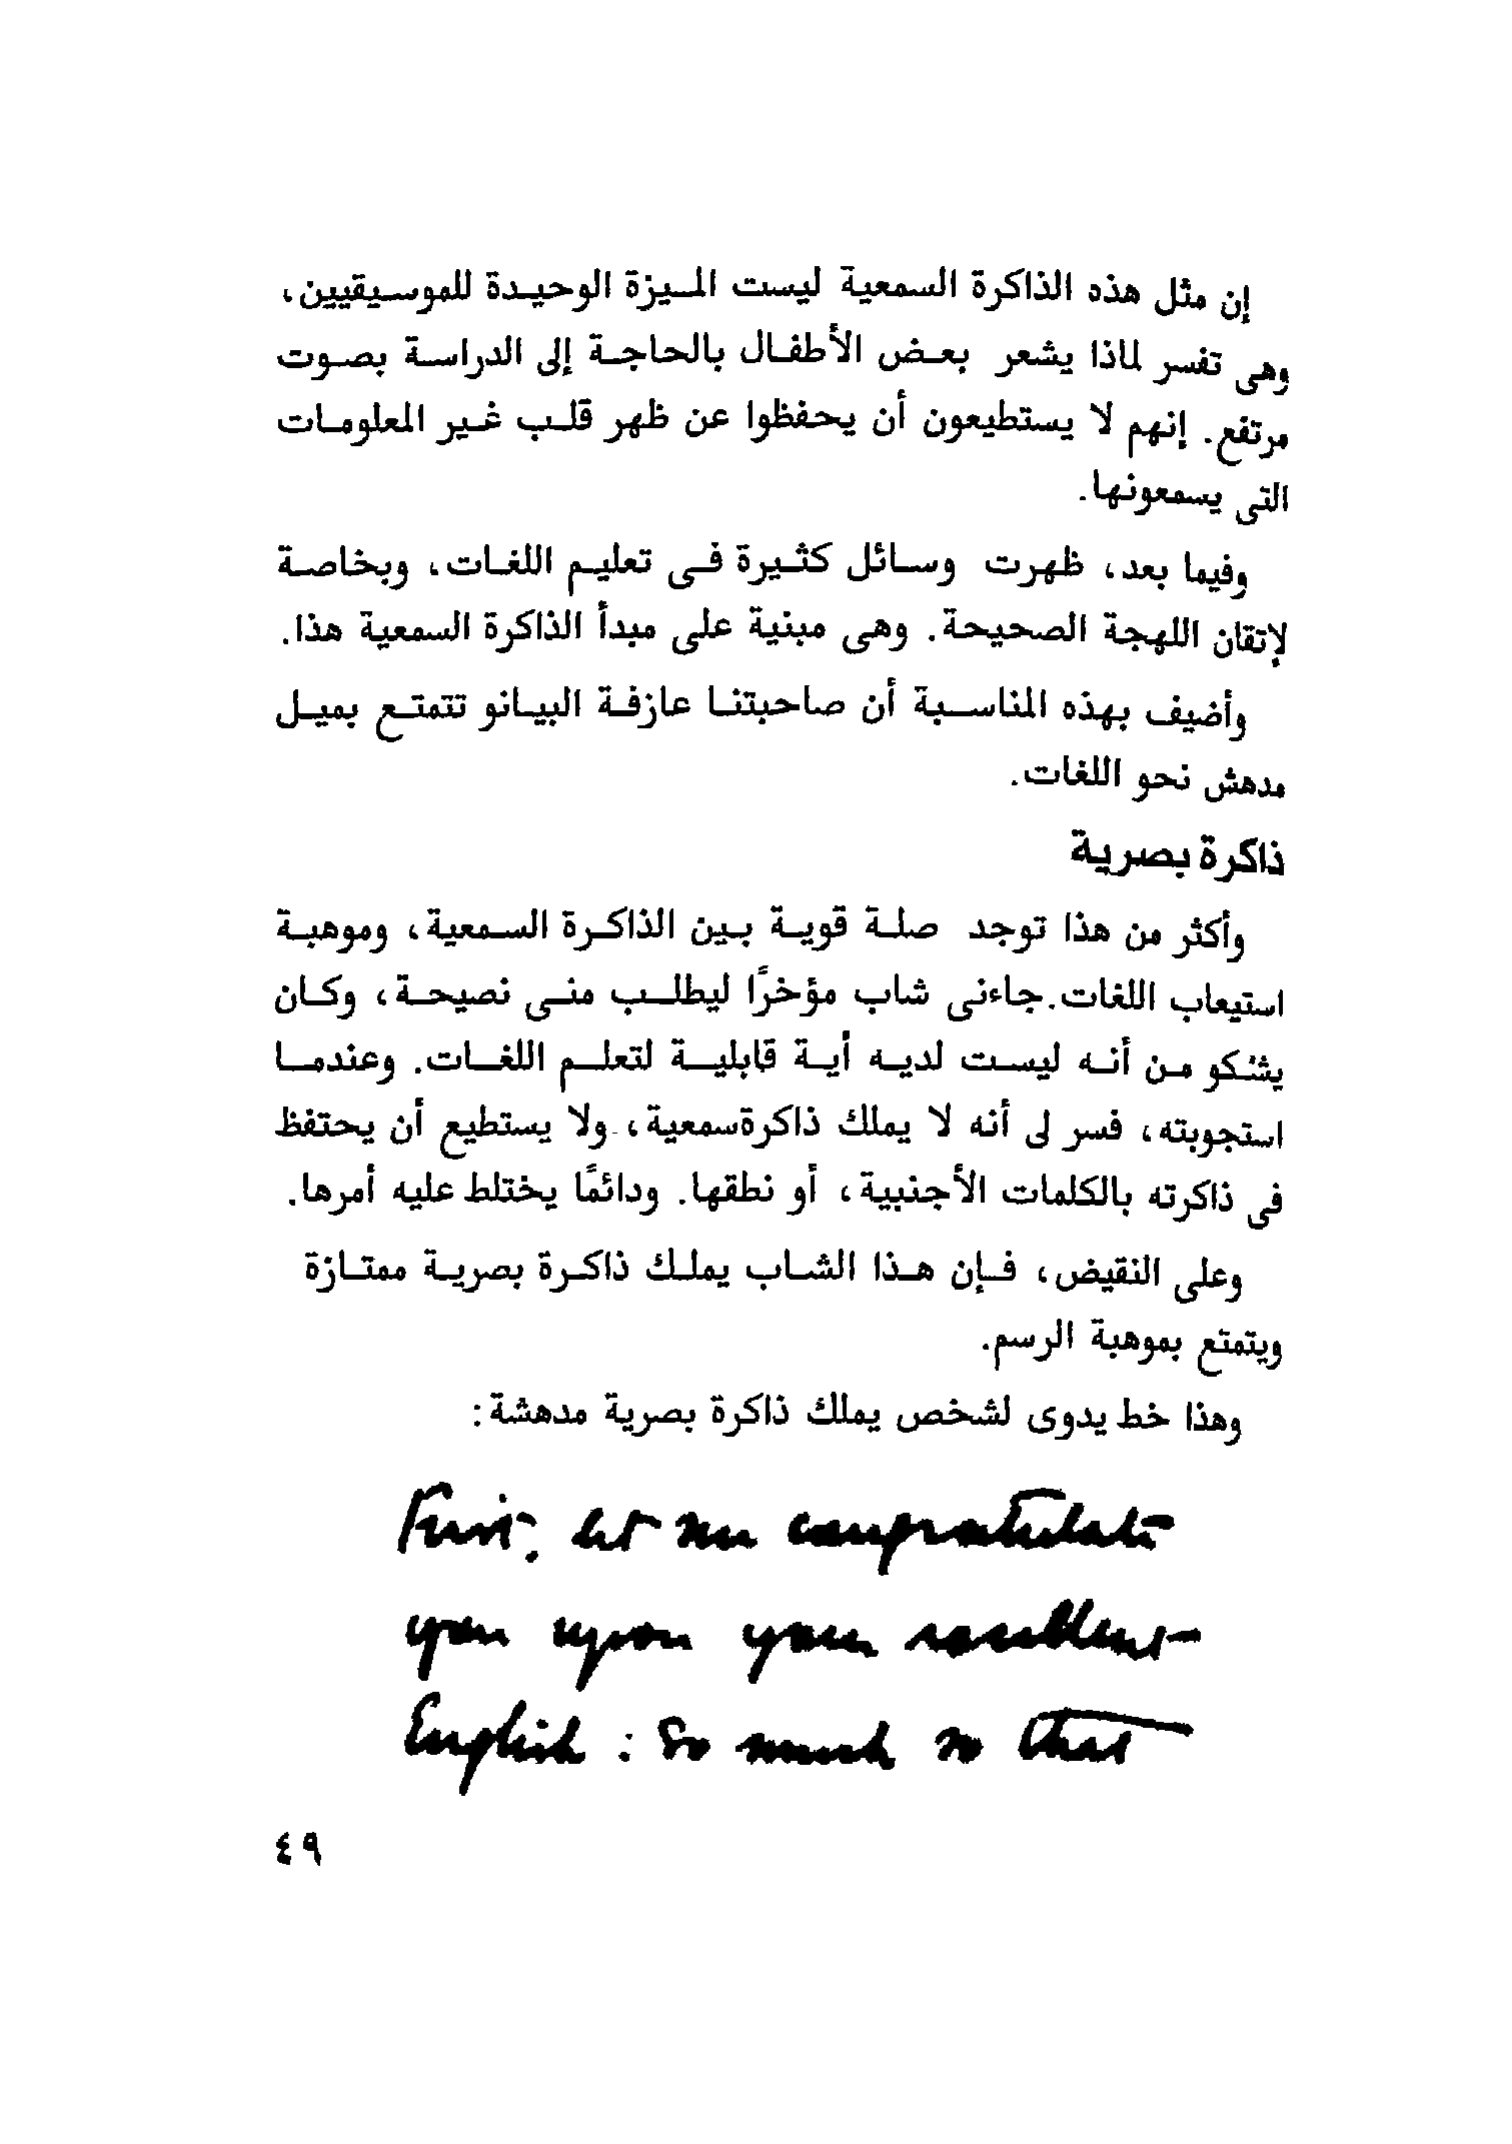 إن مثل هذه الذاكرة السمعية ليست الميزة الوحيدة للموسيقيين،
وهى تفسر لماذا يشعر بعض الأطفال بالحاجة إلى الدراسة بصوت
مرتفع. إنهم لا يستطيعون أن يحفظوا عن ظهر قلب غير المعلومات
التى يسمعونها.
وفيما بعد، ظهرت وسائل كثيرة فى تعليم اللغات، وبخاصة
لإتقان اللهجة الصحيحة. وهى مبنية على مبدأ الذاكرة السمعية هذا.
وأضيف بهذه المناسبة أن صاحبتنا عازفة البيانو تتمتع بميل
مدهش نحو اللغات.
ذاكرة بصرية
وأكثر من هذا توجد صلة قوية بين الذاكرة السمعية، وموهبة
استيعاب اللغات.جاءنى شاب مؤخرًا ليطلب منى نصيحة، وكان
يشكو من أنه ليست لديه أية قابلية لتعلم اللغات. وعندما
استجوبته، فسر لى أنه لا يملك ذاكرةسمعية، ولا يستطيع أن يحتفظ
فى ذاكرته بالكلمات الأجنبية، أو نطقها. ودائمًا يختلط عليه أمرها.
وعلى النقيض، فإن هذا الشاب يملك ذاكرة بصرية ممتازة
ويتمتع بموهبة الرسم.
وهذا خط يدوى لشخص يملك ذاكرة بصرية مدهشة:
First: let me congratulate
you upon your excellent
English : So much so that
٤٩